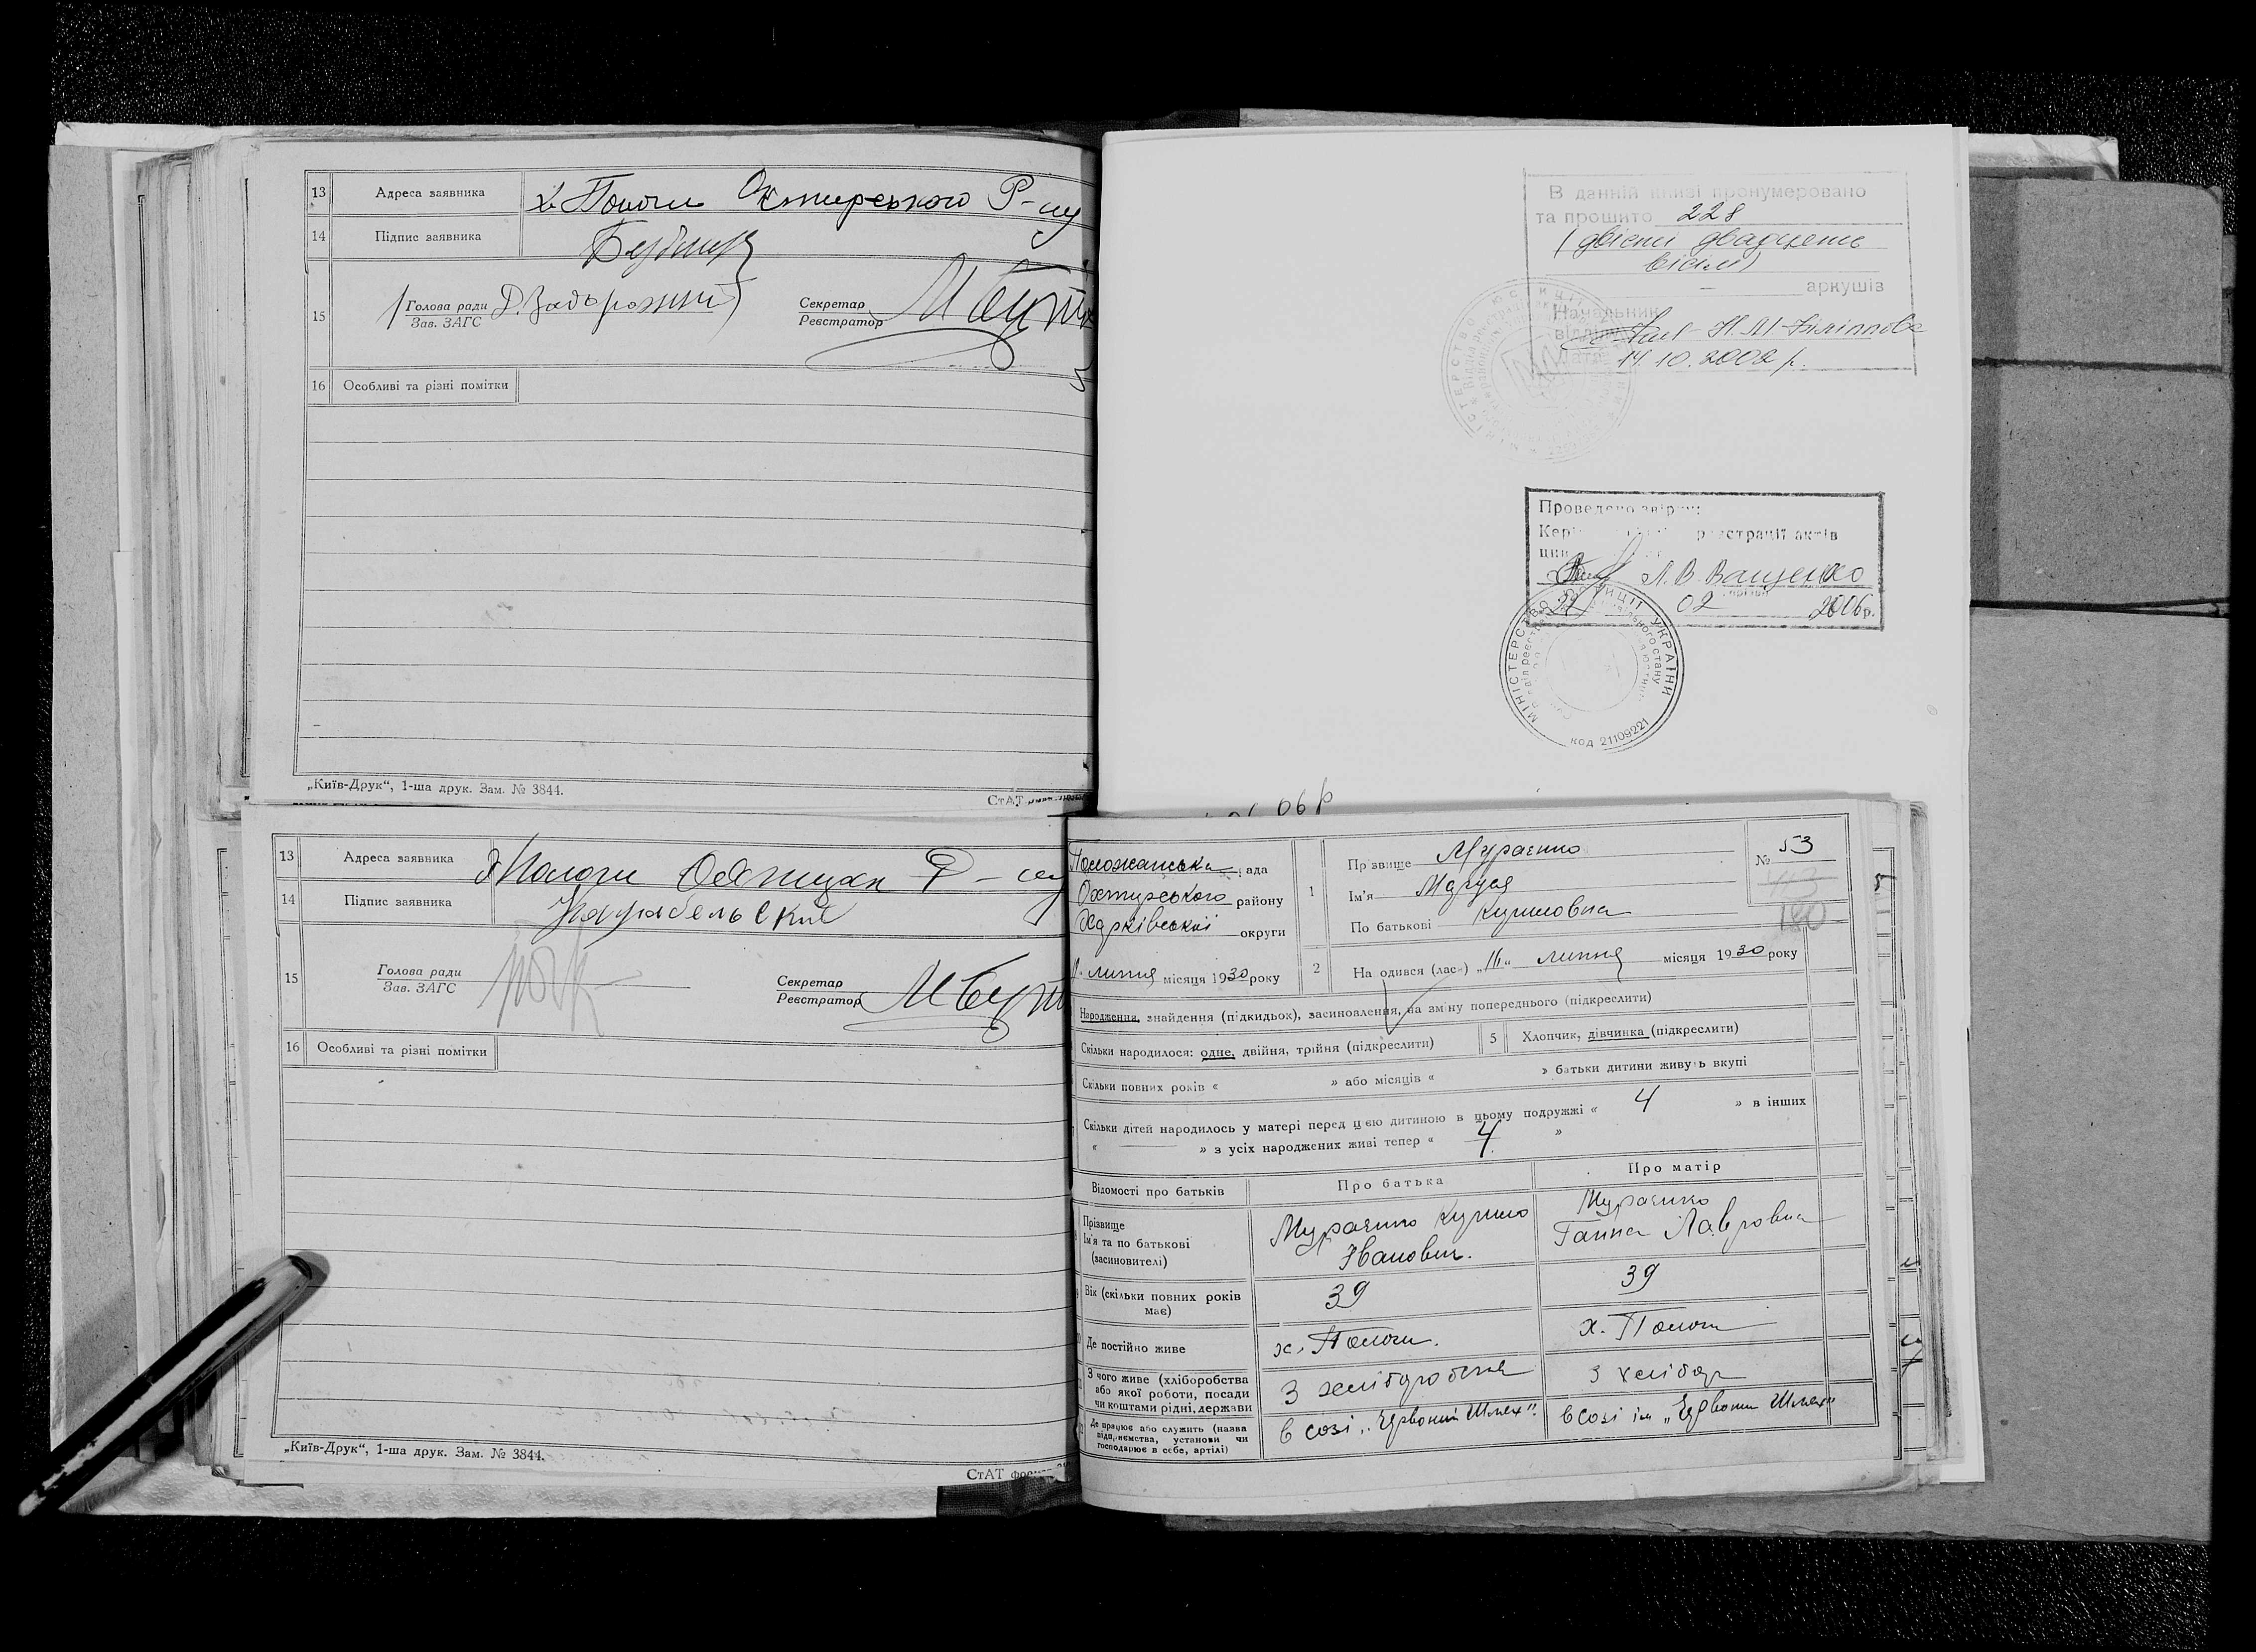 13 Адреса заявника х. Пологи Охтирського Р-ну
14 Підпис заявника
15 Голова ради Д. Задорожний Секретар
Зав. ЗАГС Реєстратор
16 Особливі та різні помітки
„Київ-Друк“, 1-ша друк. Зам. № 3844.
СтАТ
В данній книзі пронумеровано
та прошито 228
(двісті двадцять
вісім)
аркушів
Начальник
відділу
14.10.2002 р.
Проведено звірку
реєстрації актів
Л.В. Ващенко
22 02 2006 р.
МІНІСТЕРСТВО ЮСТИЦІЇ УКРАЇНИ
код 21109221
06 р
13 Адреса заявника х Пологи Р-ну
14 Підпис заявника
15 Голова ради Секретар
Зав. ЗАГС Реєстратор
16 Особливі та різні помітки
„Київ-Друк“, 1-ша друк. Зам. № 3844.
СтАТ
Положанська рада
Охтирського району
Харківської округи
липня місяця 1930 року
1 Прізвище
Ім'я Маруся
По батькові Кулиловна
№ 53
2 На одився (лась) „11“ липня місяця 1930 року
Народження, знайдення (підкидьок), засиновлення, на зміну попереднього (підкреслити)
Скільки народилося: одне, двійня, трійня (підкреслити) 5 Хлопчик, дівчинка (підкреслити)
Скільки повних років « » або місяців « » батьки дитини живуть вкупі
Скільки дітей народилось у матері перед цією дитиною в цьому подружжі « 4 » в інших
« » з усіх народжених живі тепер « 4 »
Відомості про батьків Про батька Про матір
Прізвище
Ім'я та по батькові Іванович. Ганна Лавровна
(засновителі)
Вік (скільки повних років має) 39 39
Де постійно живе х. Пологи. х. Пологи
З чого живе (хліборобства
або якої роботи, посади
чи коштами рідні, держави З хліборобства З хлібор
Де працює або служить (назва
підприємства, установи чи
господарює в себе, артілі) в созі „Червоний Шлях“. в созі ім „Червоний Шлях“